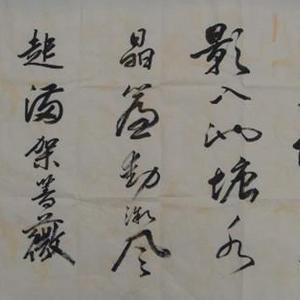 影入池塘水
晶簾動微風
起滿架薔薇